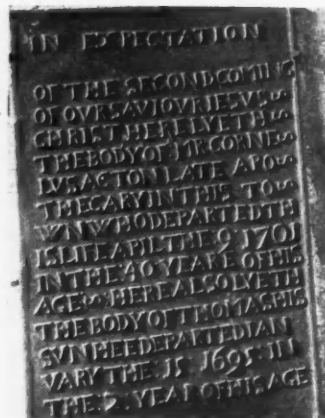 IN EXPECTATION
OF THE SECOND COMING
OF OVR SAVIOVR JESVS
CHRIST HERE LYETH
THE BODY OF MR CORNE
LVS ACTON LATE APO
THECARY IN THIS TO
WN WHO DEPARTED TH
IS LIFE APIL THE 9 1701
IN THE 40 YEARE OF HIS
AGE HERE ALSO LYETH
THE BODY OF THOMAS HIS
SVN HEE DEPARTED IAN
VARY THE 15 1695 IN
THE 2 YEAR OF HIS AGE